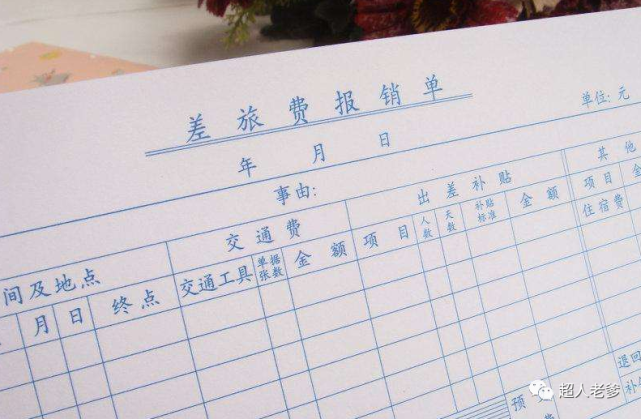 差旅费报销单
单位:元
年 月 日
事由:
间及地点 交通费 出差补贴 其他
月 日 终点 交通工具 单据张数 金额 项目 人数 天数 补贴标准 金额 项目 金
住宿费
退回
预 补
超人老爹